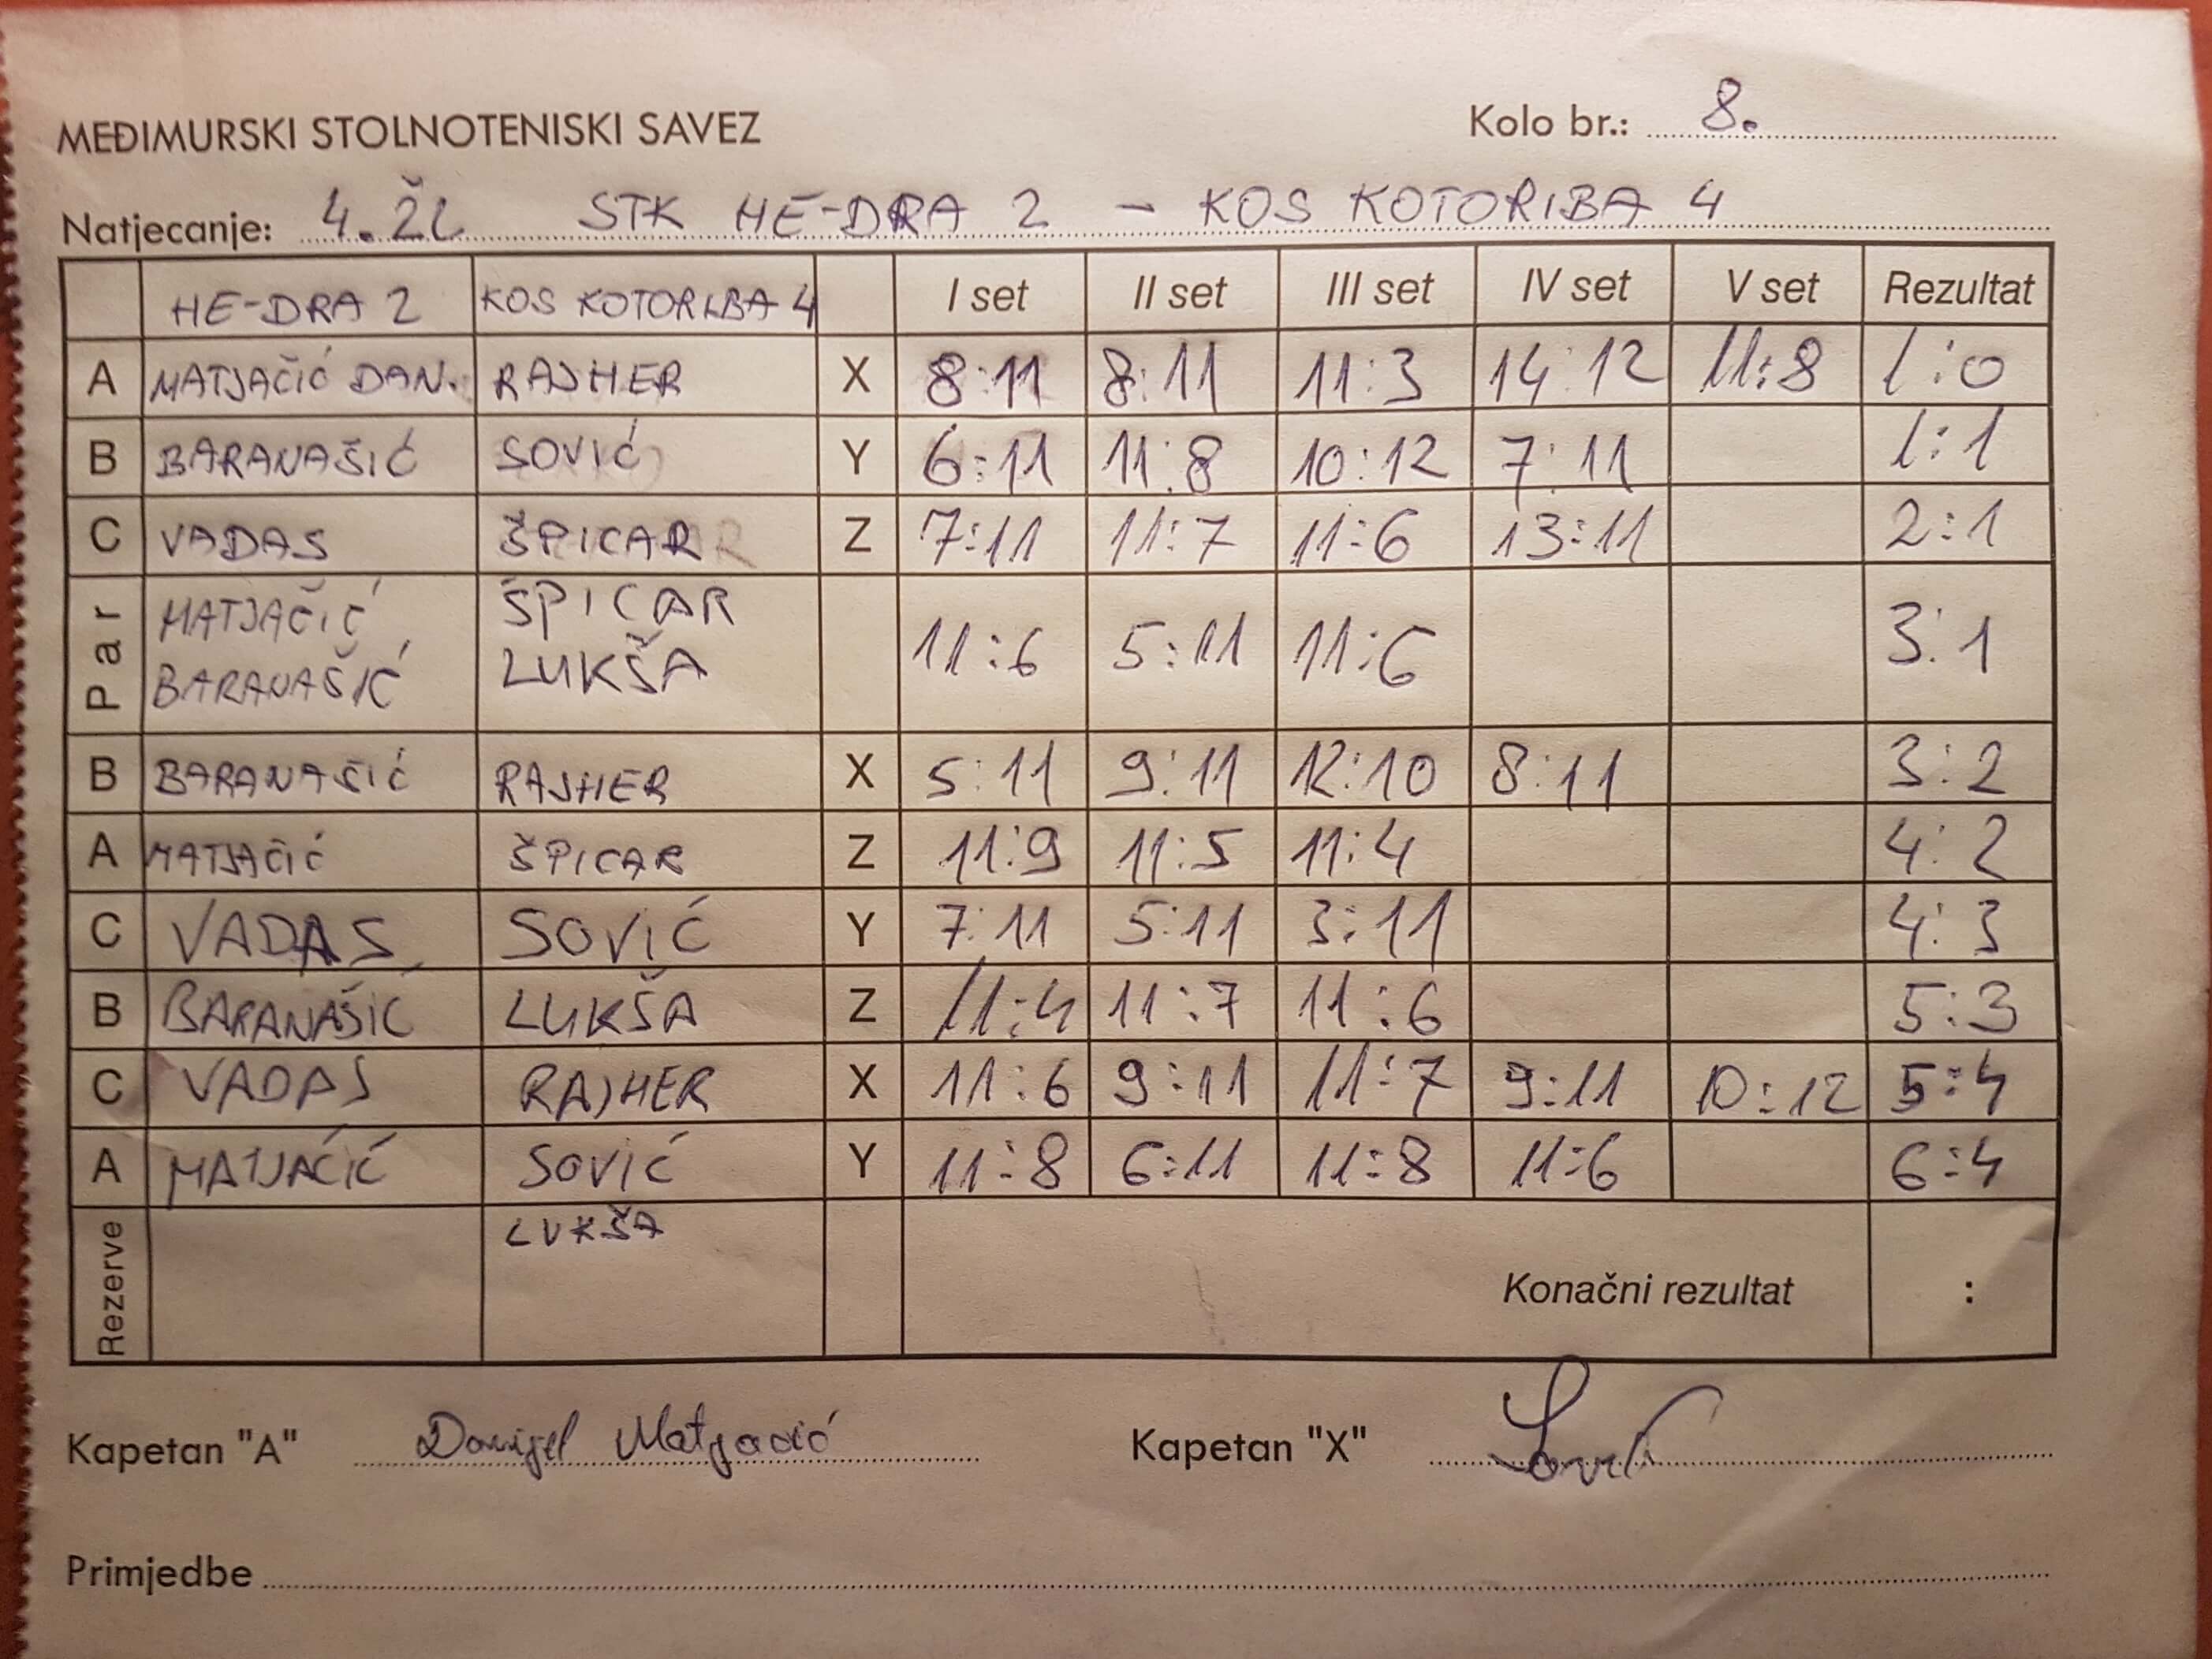 MEĐIMURSKI STOLNOTENISKI SAVEZ Kolo br.: 8.
Natjecanje: 4. ŽL STK HE-DRA 2 - KOS KOTORIBA 4
HE-DRA 2 KOS KOTORIBA 4 I set II set III set IV set V set Rezultat
A MATJAČIĆ DAN. RAJHER X 8:11 8:11 11:3 14:12 11:8 1:0
B BARANAŠIĆ SOVIĆ Y 6:11 11:8 10:12 7:11 1:1
C VADAS ŠPICAR Z 7:11 11:7 11:6 13:11 2:1
Par MATJAČIĆ BARANAŠIĆ ŠPICAR LUKŠA 11:6 5:11 11:6 3:1
B BARANAŠIĆ RAJHER X 5:11 9:11 12:10 8:11 3:2
A MATJAČIĆ ŠPICAR Z 11:9 11:5 11:4 4:2
C VADAS SOVIĆ Y 7:11 5:11 3:11 4:3
B BARANAŠIĆ LUKŠA Z 11:4 11:7 11:6 5:3
C VADAS RAJHER X 11:6 9:11 11:7 9:11 10:12 5:4
A MATJAČIĆ SOVIĆ Y 11:8 6:11 11:8 11:6 6:4
Rezerve LUKŠA Konačni rezultat :
Kapetan "A" Danijel Matjačić Kapetan "X"
Primjedbe